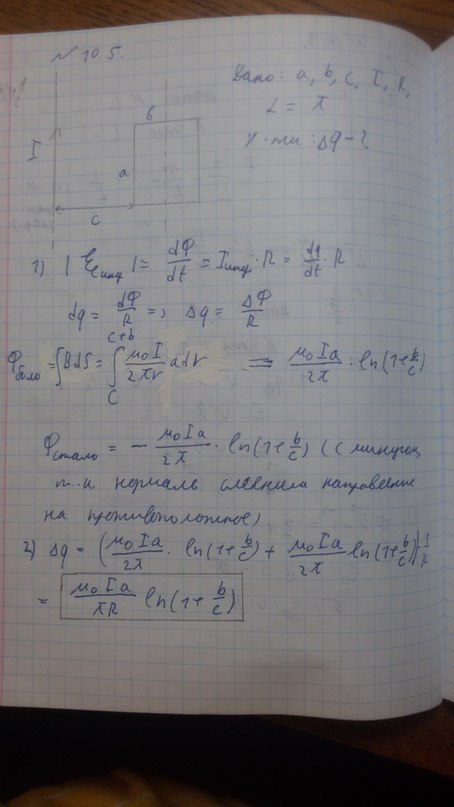 № 10.5.
Дано: a, b, c, I, R,
α = π
Н-ти: Δq - ?
b
I
a
c
1) |ℰинд| = dФ/dt = Iинд · R = dq/dt · R
dq = dФ/R => Δq = ΔФ/R
Фбыло = ∫BdS = ∫_c^{c+b} μ₀I/2πr adr = μ₀Ia/2π · ln(1+b/c)
Фстало = - μ₀Ia/2π · ln(1+b/c) (с минусом,
т.к нормаль сменила направление
на противоположное)
2) Δq = (μ₀Ia/2π · ln(1+b/c) + μ₀Ia/2π ln(1+b/c)) 1/R
= μ₀Ia/πR ln(1+b/c)